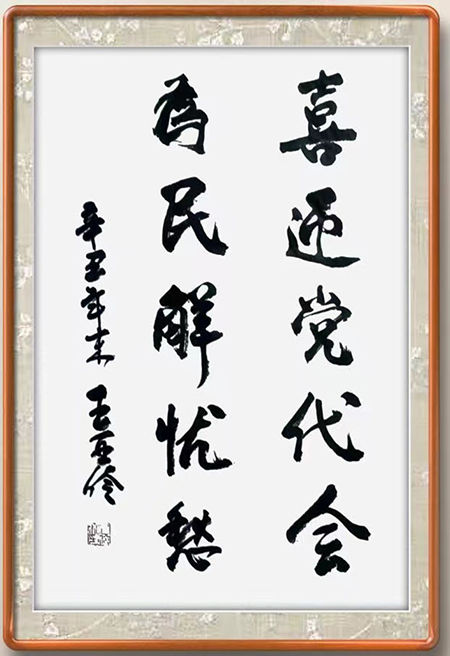 喜迎党代会
为民解忧愁
辛丑年末 王亚伶